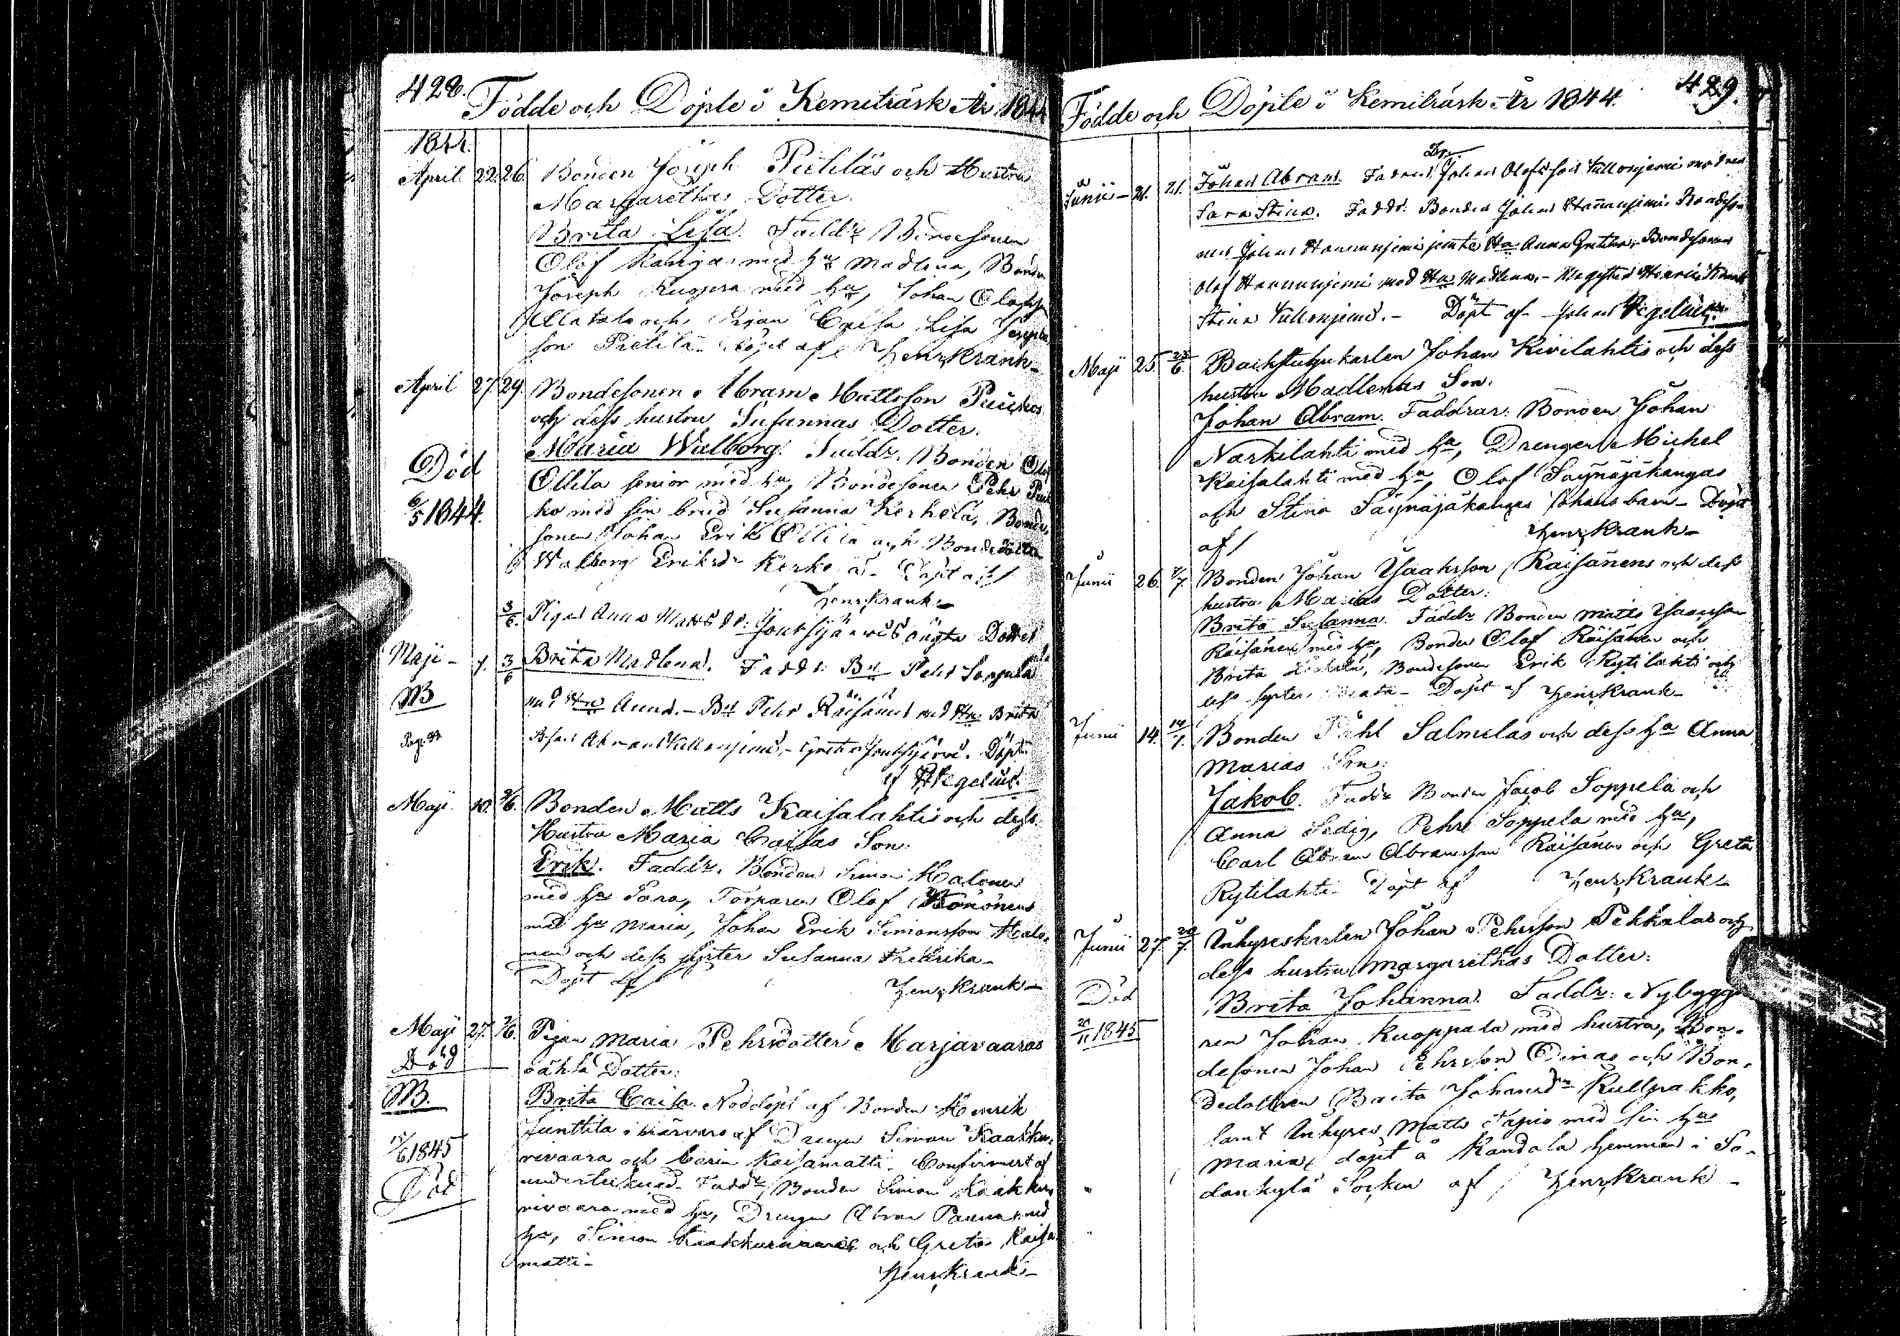 428.
Födde och Döpte i Kemiträsk År 1844
1844.
April 22. 26. Bonden Joseph Pietiläs och Hustru
Margarethas Dotter.
Brita Lisa. Faddr Bondesonen
Olof Kangas med hu Madlena, Bonden
Joseph Kuopra med hu, Johan Olofss
Allatalo och Pigan Caisa Lisa Josephs
son Pietilä. Döpt af Henr. Krank
April 27. 29. Bondesonen Abram Mattsson Puikos
och dess hustru Susannas Dotter.
Maria Walborg. Faddr. Bonden Olof
Död
Ollila senior med hu, Bondesonen Pehr
6/5 1844.
ko med sin brud Susanna Kerkelä, Bonde
sonen Johan Erik Ollila och Bondedottern
Walborg Eriksdr Kerkelä. Döpt af
Henr. Krank
3/6 Pigan Anna Mattsdr Joutsijärvis oägta Dotter
Maji 7. 3/6 Brita Madlena. Faddr: Bn Pehr Soppela
NB
med Hu Anna. - Bn Pehr Räisänen med Hu Brita
Pag. Abram Kallonjemi, - Greta Joutsijärvi. Döpt
af Hegelius.
Maji 10. 2/6. Bonden Matts Kaisalahtis och dess
Hustru Maria Caisas Son.
Erik. Faddr. Bonden Simon Halonen
med hu Sara, Torparen Olof Kononens
med hu Maria, Johan Erik Simonsson Halo-
nen och dess syster Susanna Fredrika
Döpt af Henr. Krank
Maji 27. 2/6. Pigan Maria Pehrsdotter Marjavaaras
Död
oäkta Dotter:
NB.
Brita Caisa. Noddöpt af Bonden Henrik
Junttila i närvaro af Drengen Simon Kaakku-
1845
rivaara och Carin Kaisamatti. Confirmert af
Död
undertecknad. Faddr, Bonden Simon Kaakku
rivaara med hu, Drengen Abram Pauna med
hu, Simon Kaakkurivaara och Greta Kaisa
matti
Henr. Krank
429.
Födde och Döpte i Kemiträsk År 1844.
Junii 21. 21. Johan Abram. Fadren Johan Olofsson Kallonjemi modren
Sara Stina. Faddr: Bonden Johan Hannunjemi Bondeso-
nen Johan Hannunjemi jemte Hu Anna Greta, Bondesonen
Olof Hannunjemi med Hu Madlena,
Stina Kallonjemi. - Döpt af Johan Hegelius.
Maji 25. 23/6 Backstugukarlen Johan Kivilahtis och dess
hustru Madlenas Son.
Johan Abram. Faddrar: Bonden Johan
Narkilahti med hu, Drengen Michel
Kaisalahti med hu, Olof Säynäjäkangas
och Stina Säynäjäkangas Johans barn - Döpt
af Henr. Krank
Junii 26. /7. Bonden Johan Isaaksson Räisänens och dess
hustru Marias Dotter.
Brita Susanna. Faddr Bonden Matts Isaaksson
Räisänen med hu, Bonden Olof Räisänen och
Brita, Bondesonen Erik Rytilahti och
dess syster - Döpt af Henr. Krank
Junii 14. 14/7. Bonden Påhl Salmelas och dess hu Anna
Marias Son:
Jakob. Faddr Bonden Jacob Soppela och
Anna Sedig, Pehr Soppela med hu,
Carl Abram Abramsson Räisänen och Greta
Rytilahti. Döpt af Henr. Krank
Junii 27. 20/7. Inhyseskarlen Johan Pehrsson Pekkalas och
dess hustru Margarethas Dotter:
Död
Brita Johanna. Faddr: Nybygga
1845
ren Johan Kuoppala med hustru, Bon-
desonen Johan Pehrsson Oinas och Bon-
dedottren Brita Johansdr Kullpakko,
samt Inhyses Matts Tapio med sin hu
Maria, döpt å Kandala hemman i So-
dankylä Socken af Henr. Krank